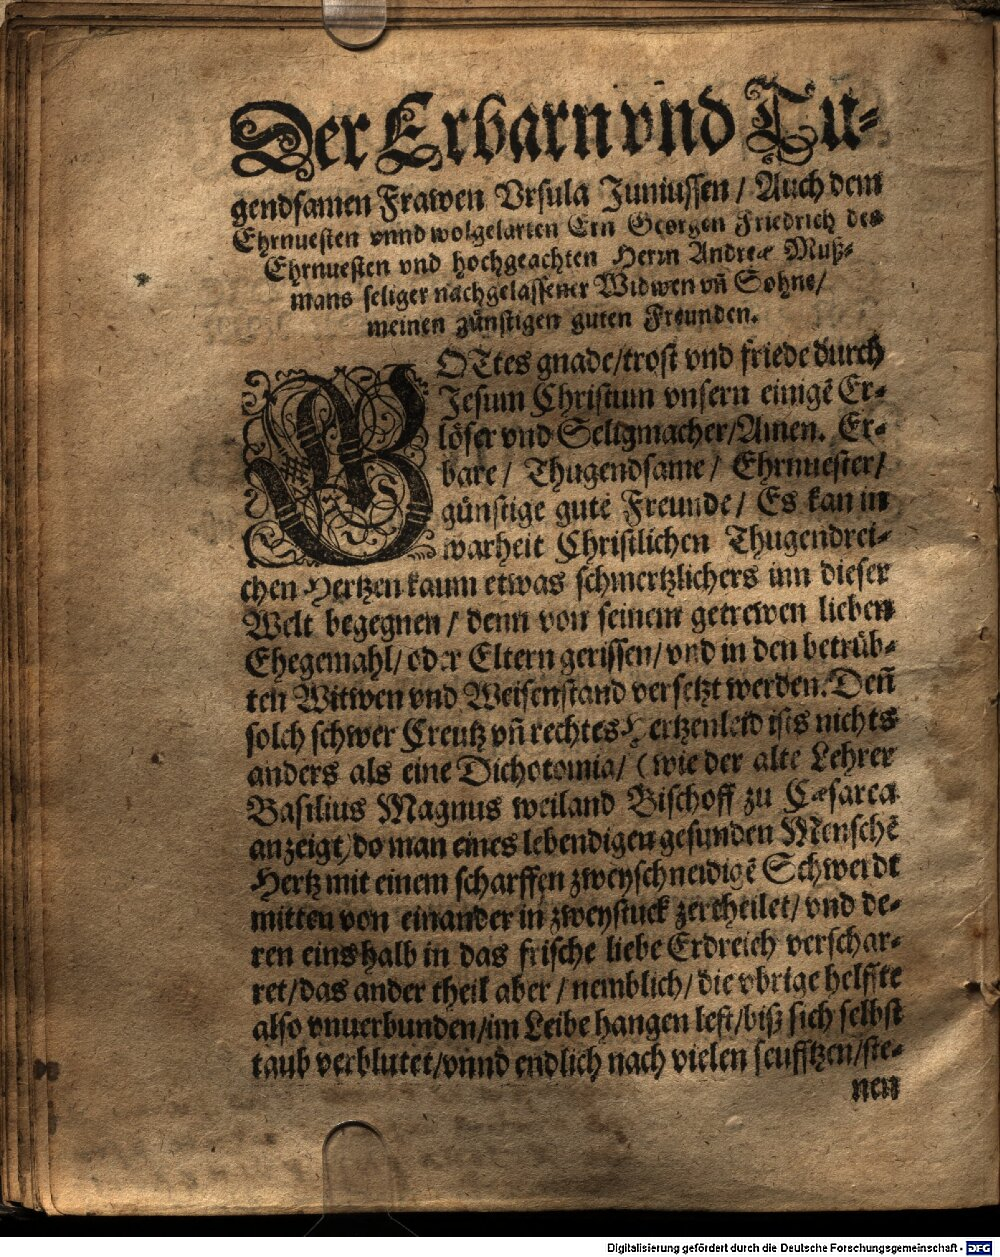 Der Erbarn vnd Tu-
gendsamen Frawen Vrsula Juniussen / Auch dem
Ehrnuesten vnnd wolgelarten Ern Georgen Friedrich des
Ehrnuesten vnd hochgeachten Herrn Andreæ Muß-
mans seliger nachgelassener Widwen vñ Sohne/
meinen günstigen guten Freunden.
GOTtes gnade/trost vnd friede durch
Jesum Christum vnsern einigẽ Er-
löser vnd Seligmacher/Amen. Er-
bare / Thugendsame / Ehrnuester/
günstige gute Freunde / Es kan in
warheit Christlichen Thugendrei-
chen Hertzen kaum etwas schmertzlichers inn dieser
Welt begegnen / denn von seinem getrewen lieben
Ehegemahl/ oder Eltern gerissen/ vnd in den betrüb-
ten Witwen vnd Weisenstand versetzt werden. Deñ
solch schwer Creutz vñ rechtes Hertzenleid ists nichts
anders als eine Dichotomia/ (wie der alte Lehrer
Basilius Magnus weiland Bischoff zu Cæsarea
anzeigt) do man eines lebendigen gesunden Menschẽ
Hertz mit einem scharffen zweyschneidigẽ Schwerdt
mitten von einander in zweystuck zertheilet/ vnd de-
ren eins halb in das frische liebe Erdreich verschar-
ret/das ander theil aber / nemblich/ die vbrige helffte
also vnuerbunden/im Leibe hangen lest/biß sich selbst
taub verblutet/vnnd endlich nach vielen seufftzen/ste-
nen
Digitalisierung gefördert durch die Deutsche Forschungsgemeinschaft - DFG